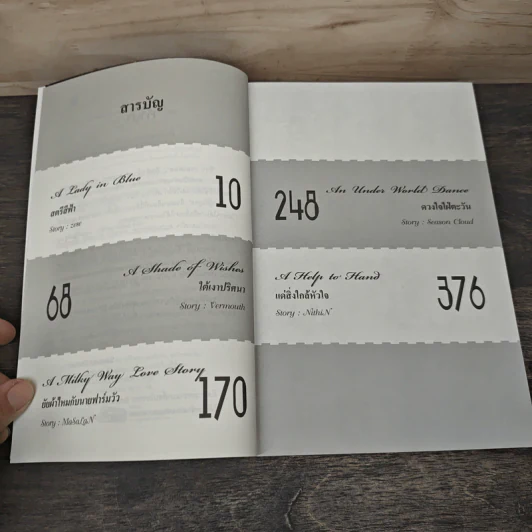 สารบัญ
A Lady in Blue
สตรีสีฟ้า
Story : zow
10
A Shade of Wishes
ใต้เงาปริศนา
Story : Vermouth
68
A Milky Way Love Story
ยัยผ้าไหมกับนายฟาร์มวัว
Story : MaSaLyN
170
248
An Under World Dance
ดวงใจใฝ่ตะวัน
Story : Season Cloud
A Help to Hand
แด่สิ่งใกล้หัวใจ
Story : NithiN
376